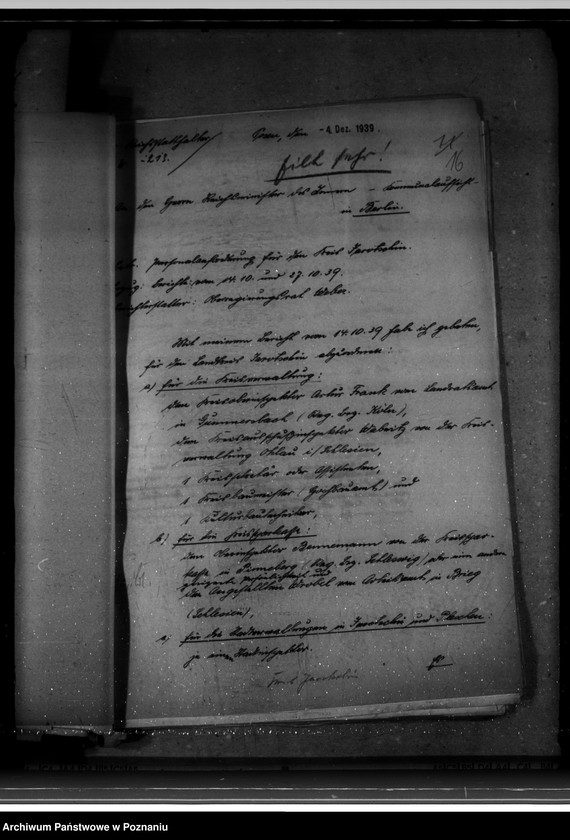 Reichsstatthalter
- 213.
Posen, den - 4. Dez. 1939.
Eilt sehr!
16
den Herrn Reichsminister des Innern – Kommunalaufsicht –
in Berlin.
Personalanforderung für den Kreis Jarotschin.
berichte vom 14.10. und 27.10.39.
Oberregierungsrat Weber.
Mit meinem Bericht vom 14.10.39 habe ich gebeten,
für den Landkreis Jarotschin abzuordnen:
a) für die Kreisverwaltung:
den Kreisoberinspektor Artur Frank vom Landratsamt
in Gummersbach (Reg. Bez. Köln),
den Kreisausschußinspektor von der Kreis-
verwaltung Ohlau i/Schlesien,
1 Kreissekretär oder Assistenten,
1 Kreisbaumeister (Hochbauamt) und
1 Kulturbautechniker,
b) für die Kreissparkasse:
den Oberinspektor Bennemann von der Kreisspar-
kasse in Pinneberg (Reg. Bez. Schleswig) oder eine andere
geeignete Persönlichkeit und
den Angestellten Wrobel vom Arbeitsamt in Brieg
(Schlesien),
c) für die Stadtverwaltungen in Jarotschin und Pleschen:
je einen Stadtinspektor.
Kreis Jarotschin
Archiwum Państwowe w Poznaniu